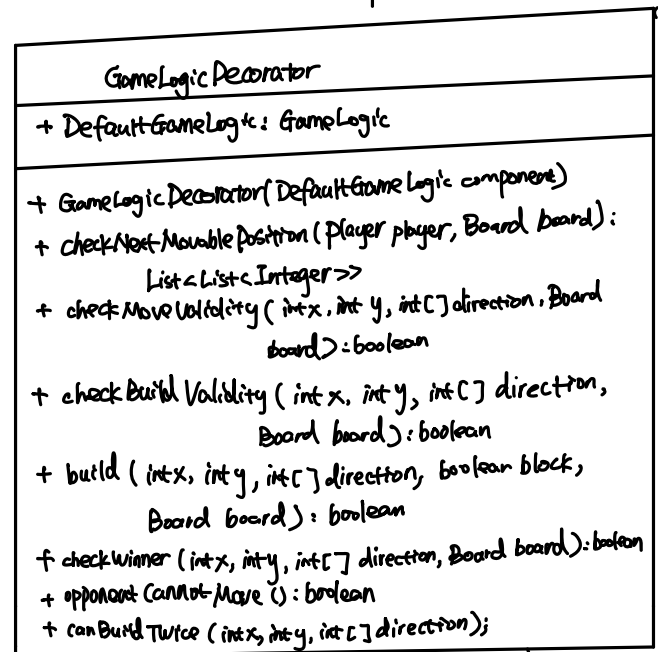 GameLogicDecorator
+ DefaultGameLogic: GameLogic
+ GameLogicDecorator(DefaultGameLogic component)
+ checkNextMovablePosition(Player player, Board board):
List<List<Integer>>
+ checkMoveValidity(int x, int y, int[] direction, Board
board): boolean
+ checkBuildValidity(int x, int y, int[] direction,
Board board): boolean
+ build(int x, int y, int[] direction, boolean block,
Board board): boolean
+ checkWinner(int x, int y, int[] direction, Board board): boolean
+ opponentCannotMove(): boolean
+ canBuildTwice(int x, int y, int[] direction);